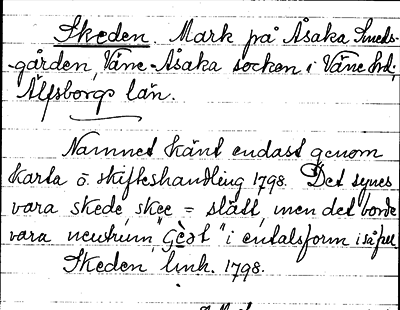 Skeden. Mark på Åsaka Smeds-
gården, Väne-Åsaka socken i Väne hd,
Älfsborgs län.
Namnet känt endast genom
karta o. skifteshandling 1798. Det synes
vara skede skee = slätt, men det borde
vara neutrum, i entalsform i så fall
Skeden link. 1798.